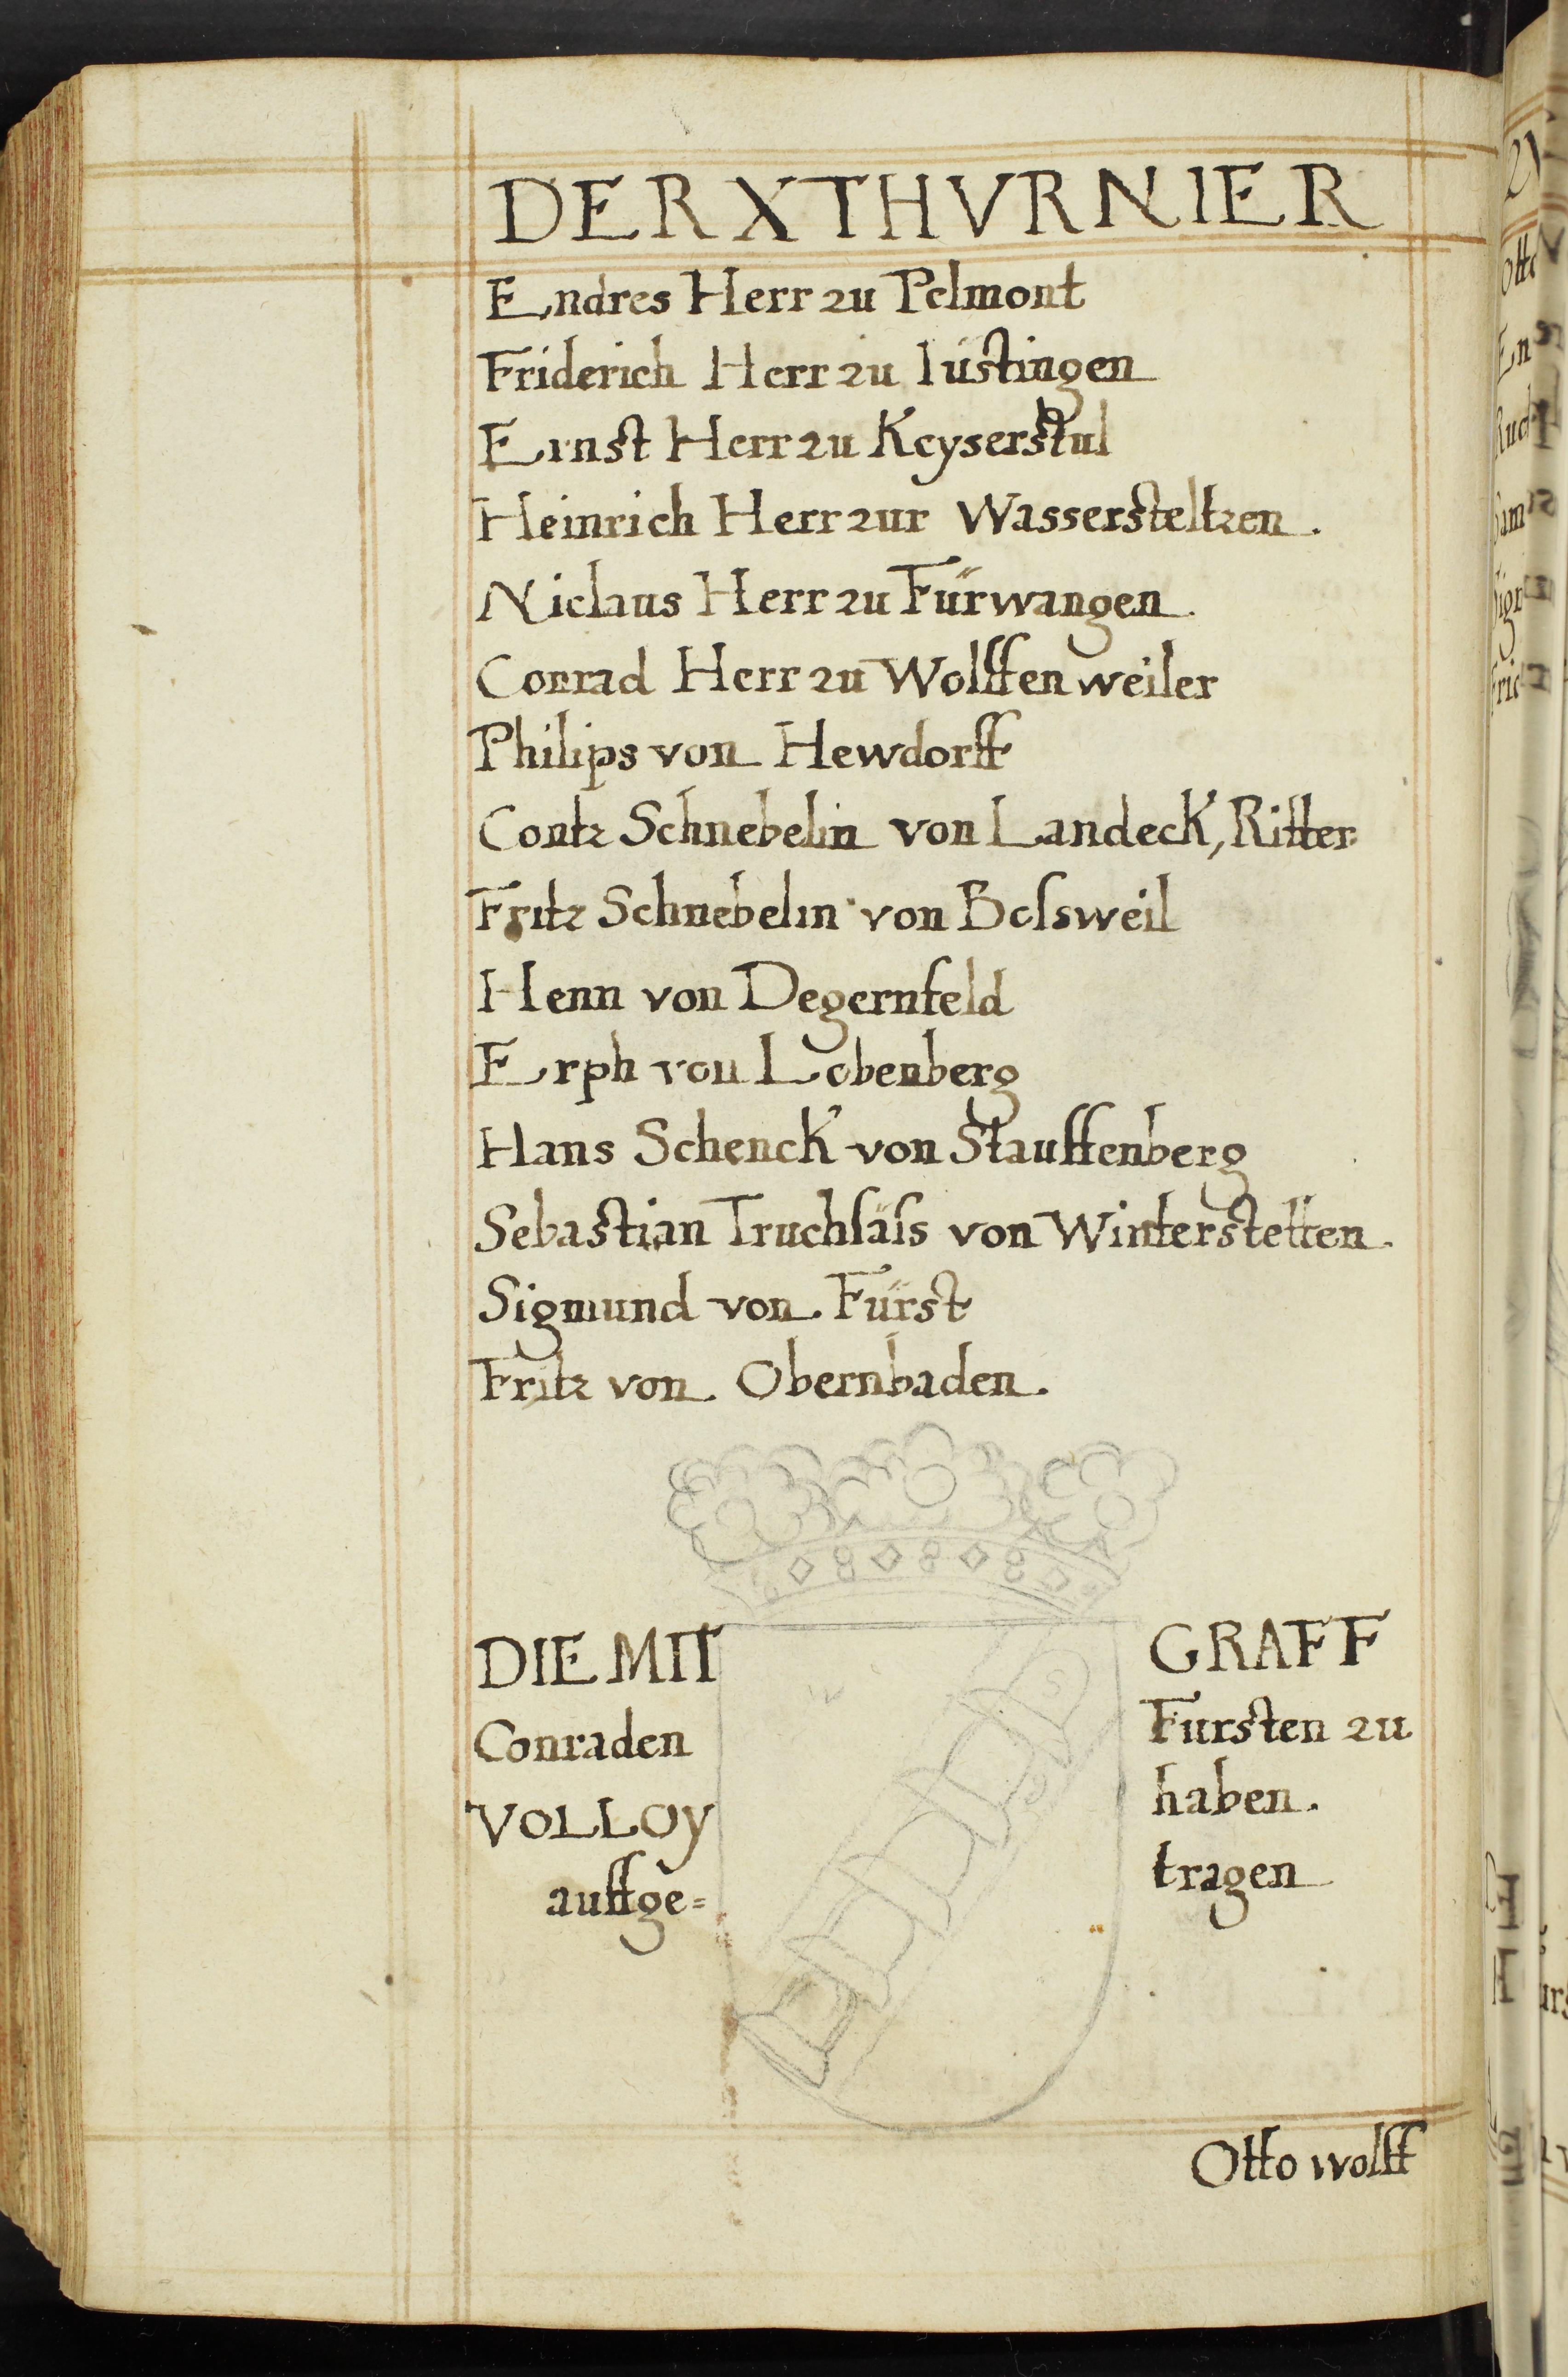 DER X THVRNIER
Endres Herr zu Pelmont
Friderich Herr zu Iüstingen
Ernst Herr zu Keyserstul
Heinrich Herr zur Wassersteltzen.
Niclaus Herr zu Fürwangen.
Conrad Herr zu Wolffenweiler
Philips von Hewdorff
Contz Schnebelin von Landeck, Ritter.
Fritz Schnebelin von Bolsweil
Henn von Degernfeld
Erph von Lobenberg
Hans Schenck von Stauffenberg
Sebastian Truchsäss von Winterstetten.
Sigmund von Fürst
Fritz von Obernbaden.
DIE MIT GRAFF
Conraden Fursten zu
VOLLOY haben.
auffge= tragen
Otto wolff